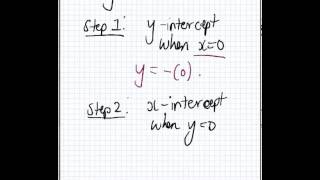 Step 1: y-intercept
when x=0
y = -(0).
Step 2: x-intercept
when y=0